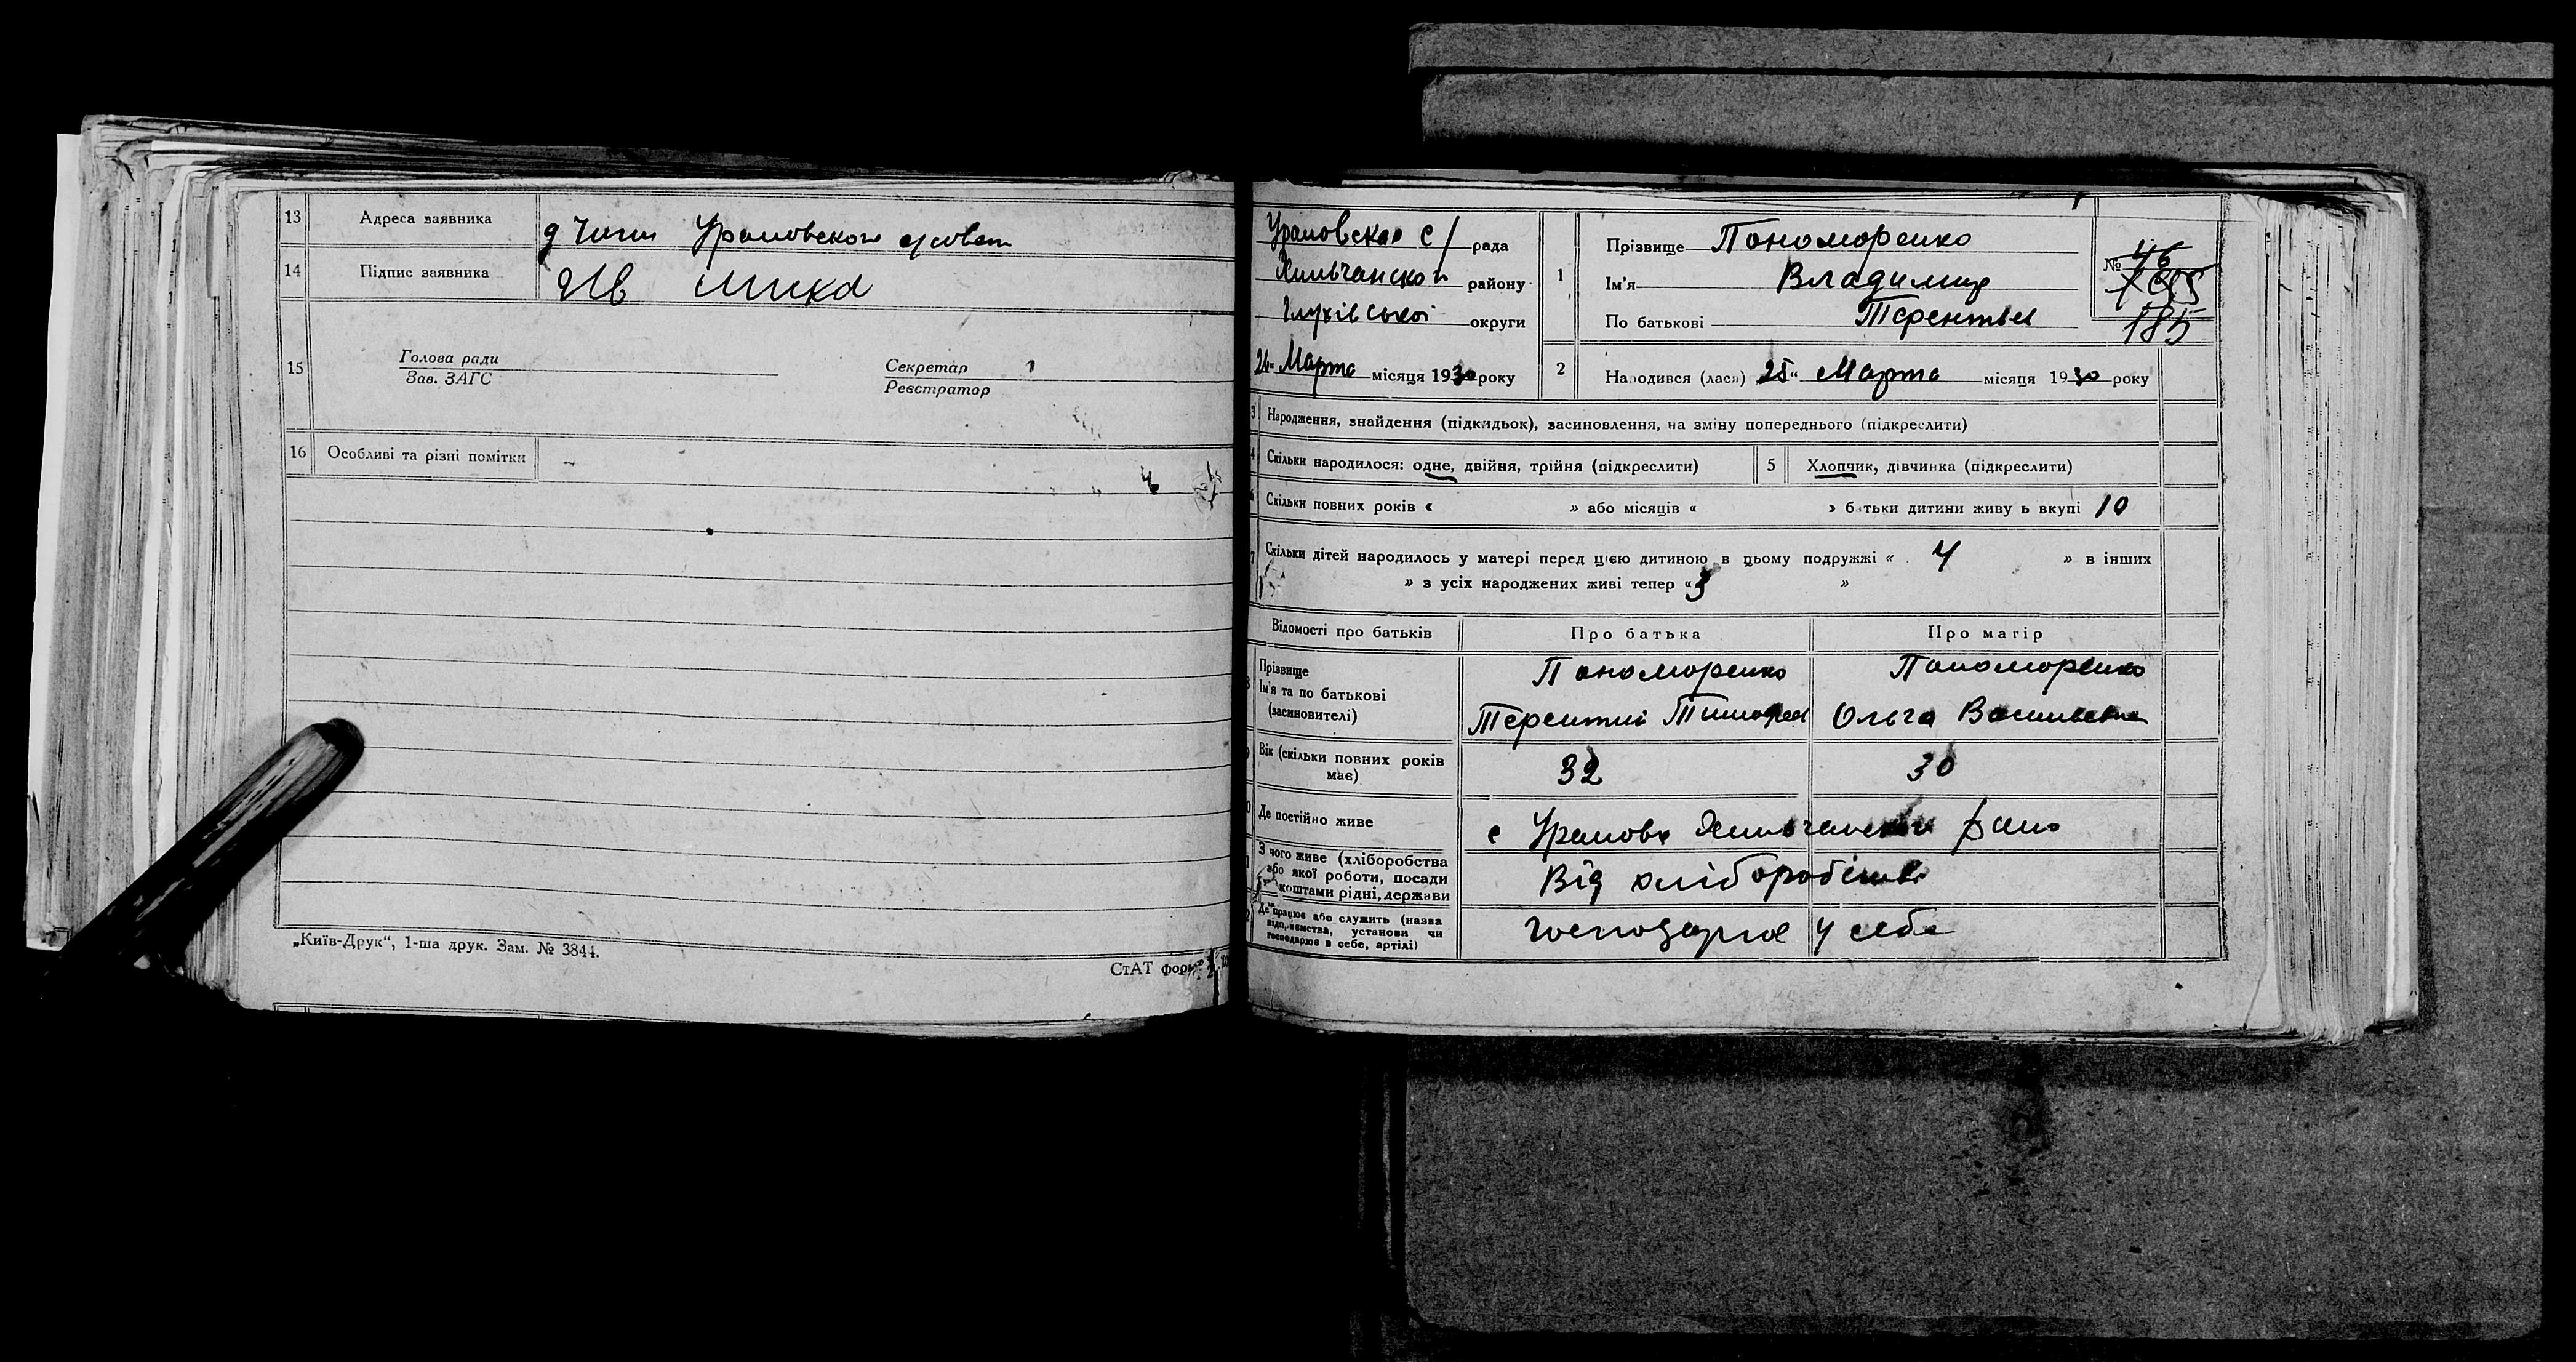 13 Адреса заявника д Чигин Урамовского с/совет
14 Підпис заявника Ив Мика
15 Голова ради Секретар
Зав. ЗАГС Реєстратор
16 Особливі та різні помітки –
„Київ-Друк“, 1-ша друк. Зам. № 3844.
СтАТ форм
Урамовская с/ рада
Хильчанской району
Глухівської округи
26 Марта місяця 1930 року
1 Прізвище Пономоренко
Ім'я Владимир
По батькові Терентьев
№ 46
185
2 Народився (лася) 25 „ Марта місяця 1930 року
3 Народження, знайдення (підкидьок), засиновлення, на зміну попереднього (підкреслити)
4 Скільки народилося: одне, двійня, трійня (підкреслити) 5 Хлопчик, дівчинка (підкреслити)
6 Скільки повних років « » або місяців « » батьки дитини живуть вкупі 10
7 Скільки дітей народилось у матері перед цією дитиною в цьому подружжі « 4 » в інших
» з усіх народжених живі тепер « 3 »
Відомості про батьків Про батька Про матір
Прізвище Пономоренко Пономоренко
Ім'я та по батькові
(засиновителі) Терентий Тимофеев Ольга Васильевна
Вік (скільки повних років має) 32 30
Де постійно живе с Урамово Хильчанского району
З чого живе (хліборобства
або якої роботи, посади
коштами рідні, держави Від хліборобства
Де працює або служить (назва
підприємства, установи чи
господарює в себе, артілі) господарює у себе